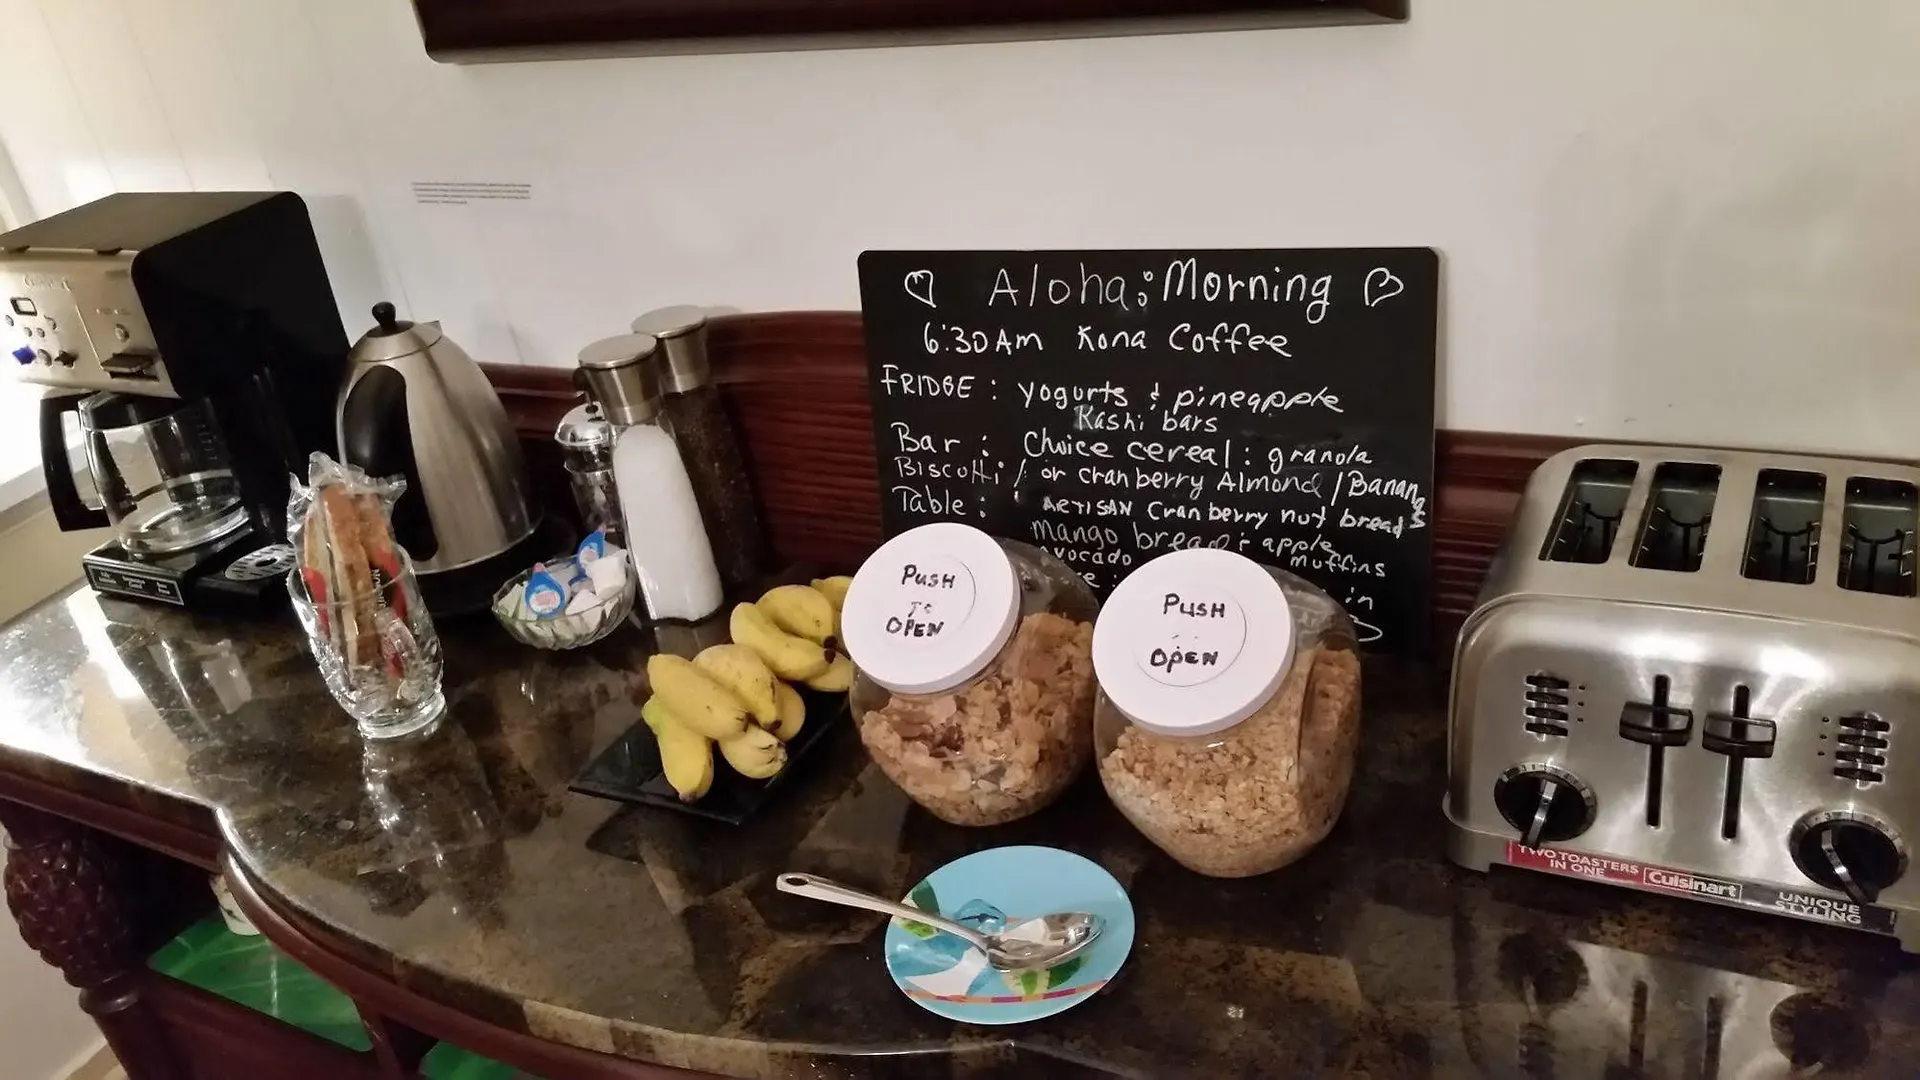 Aloha: Morning
6:30 Am Kona Coffee
FRIDGE: yogurts & pineapple
Kashi bars
Bar: Choice cereal: granola
Biscotti / or cranberry Almond / Bananas
Table: ARTISAN Cranberry nut breads
mango bread & apple
avocado muffins
in
PUSH
TO
OPEN
PUSH
OPEN
TWO TOASTERS
IN ONE
Cuisinart
UNIQUE
STYLING